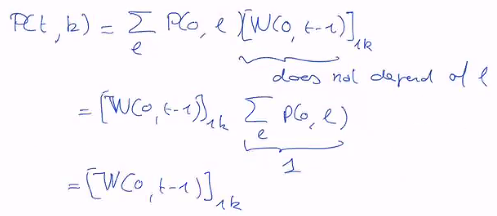 P(t, k) = ∑_e P(0, e) [W(0, t-1)]_{1k}
does not depend of e
= [W(0, t-1)]_{1k} ∑_e P(0, e)
1
= [W(0, t-1)]_{1k}